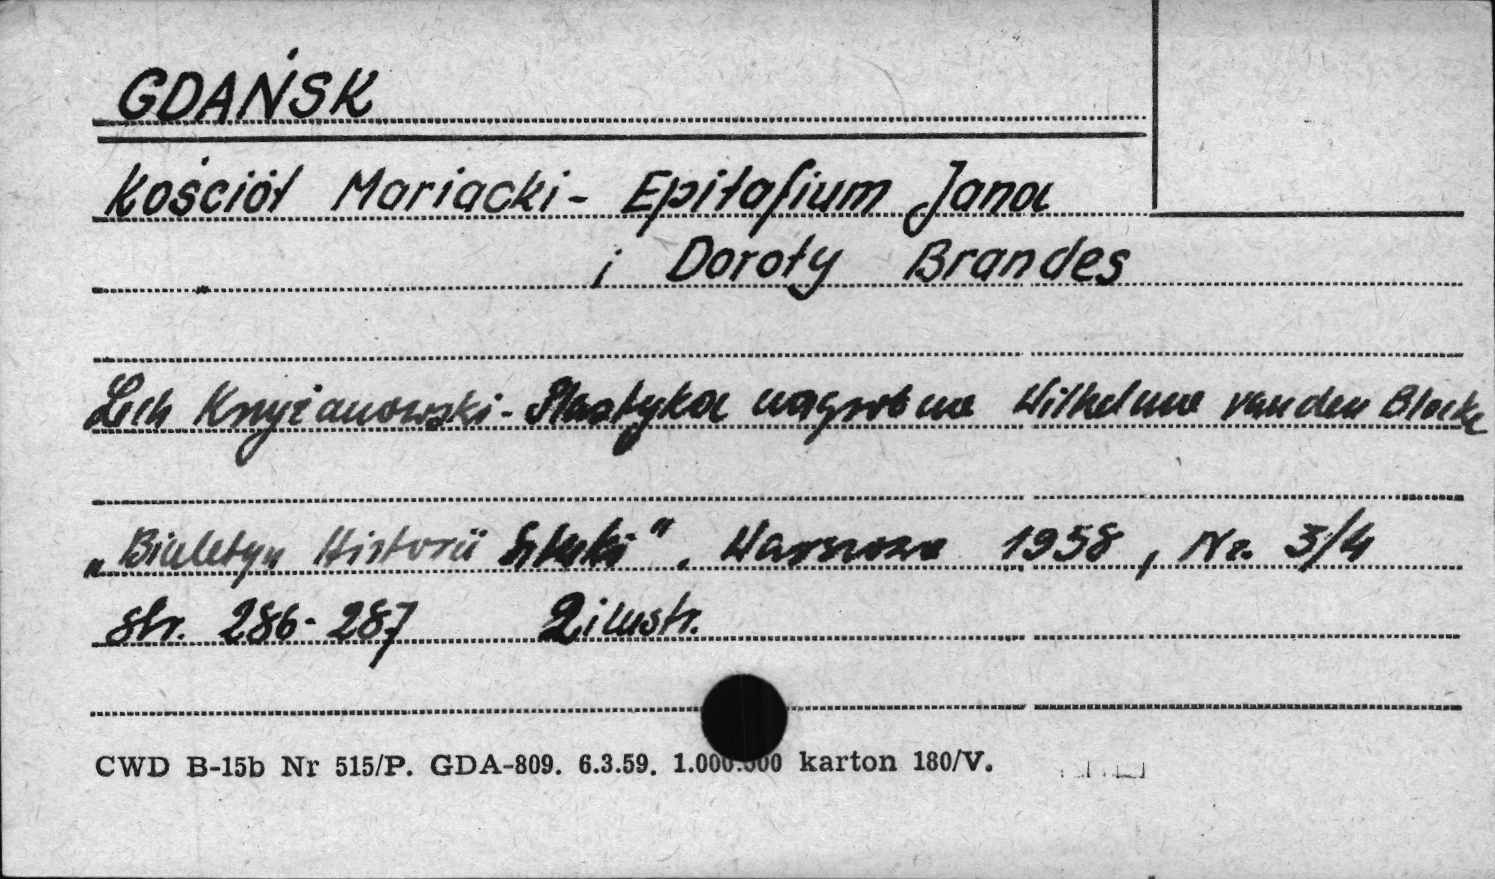 GDAŃSK
Kościół Mariacki - Epitafium Jana
i Doroty Brandes
Lech Krzyżanowski - Plastyka nagrobna Wilhelma van den Blocke
„Biuletyn Historii Sztuki", Warszawa 1958, Nr. 3/4
str. 286-287 2 ilustr.
CWD B-15b Nr 515/P. GDA-809. 6.3.59. 1.000.000 karton 180/V.